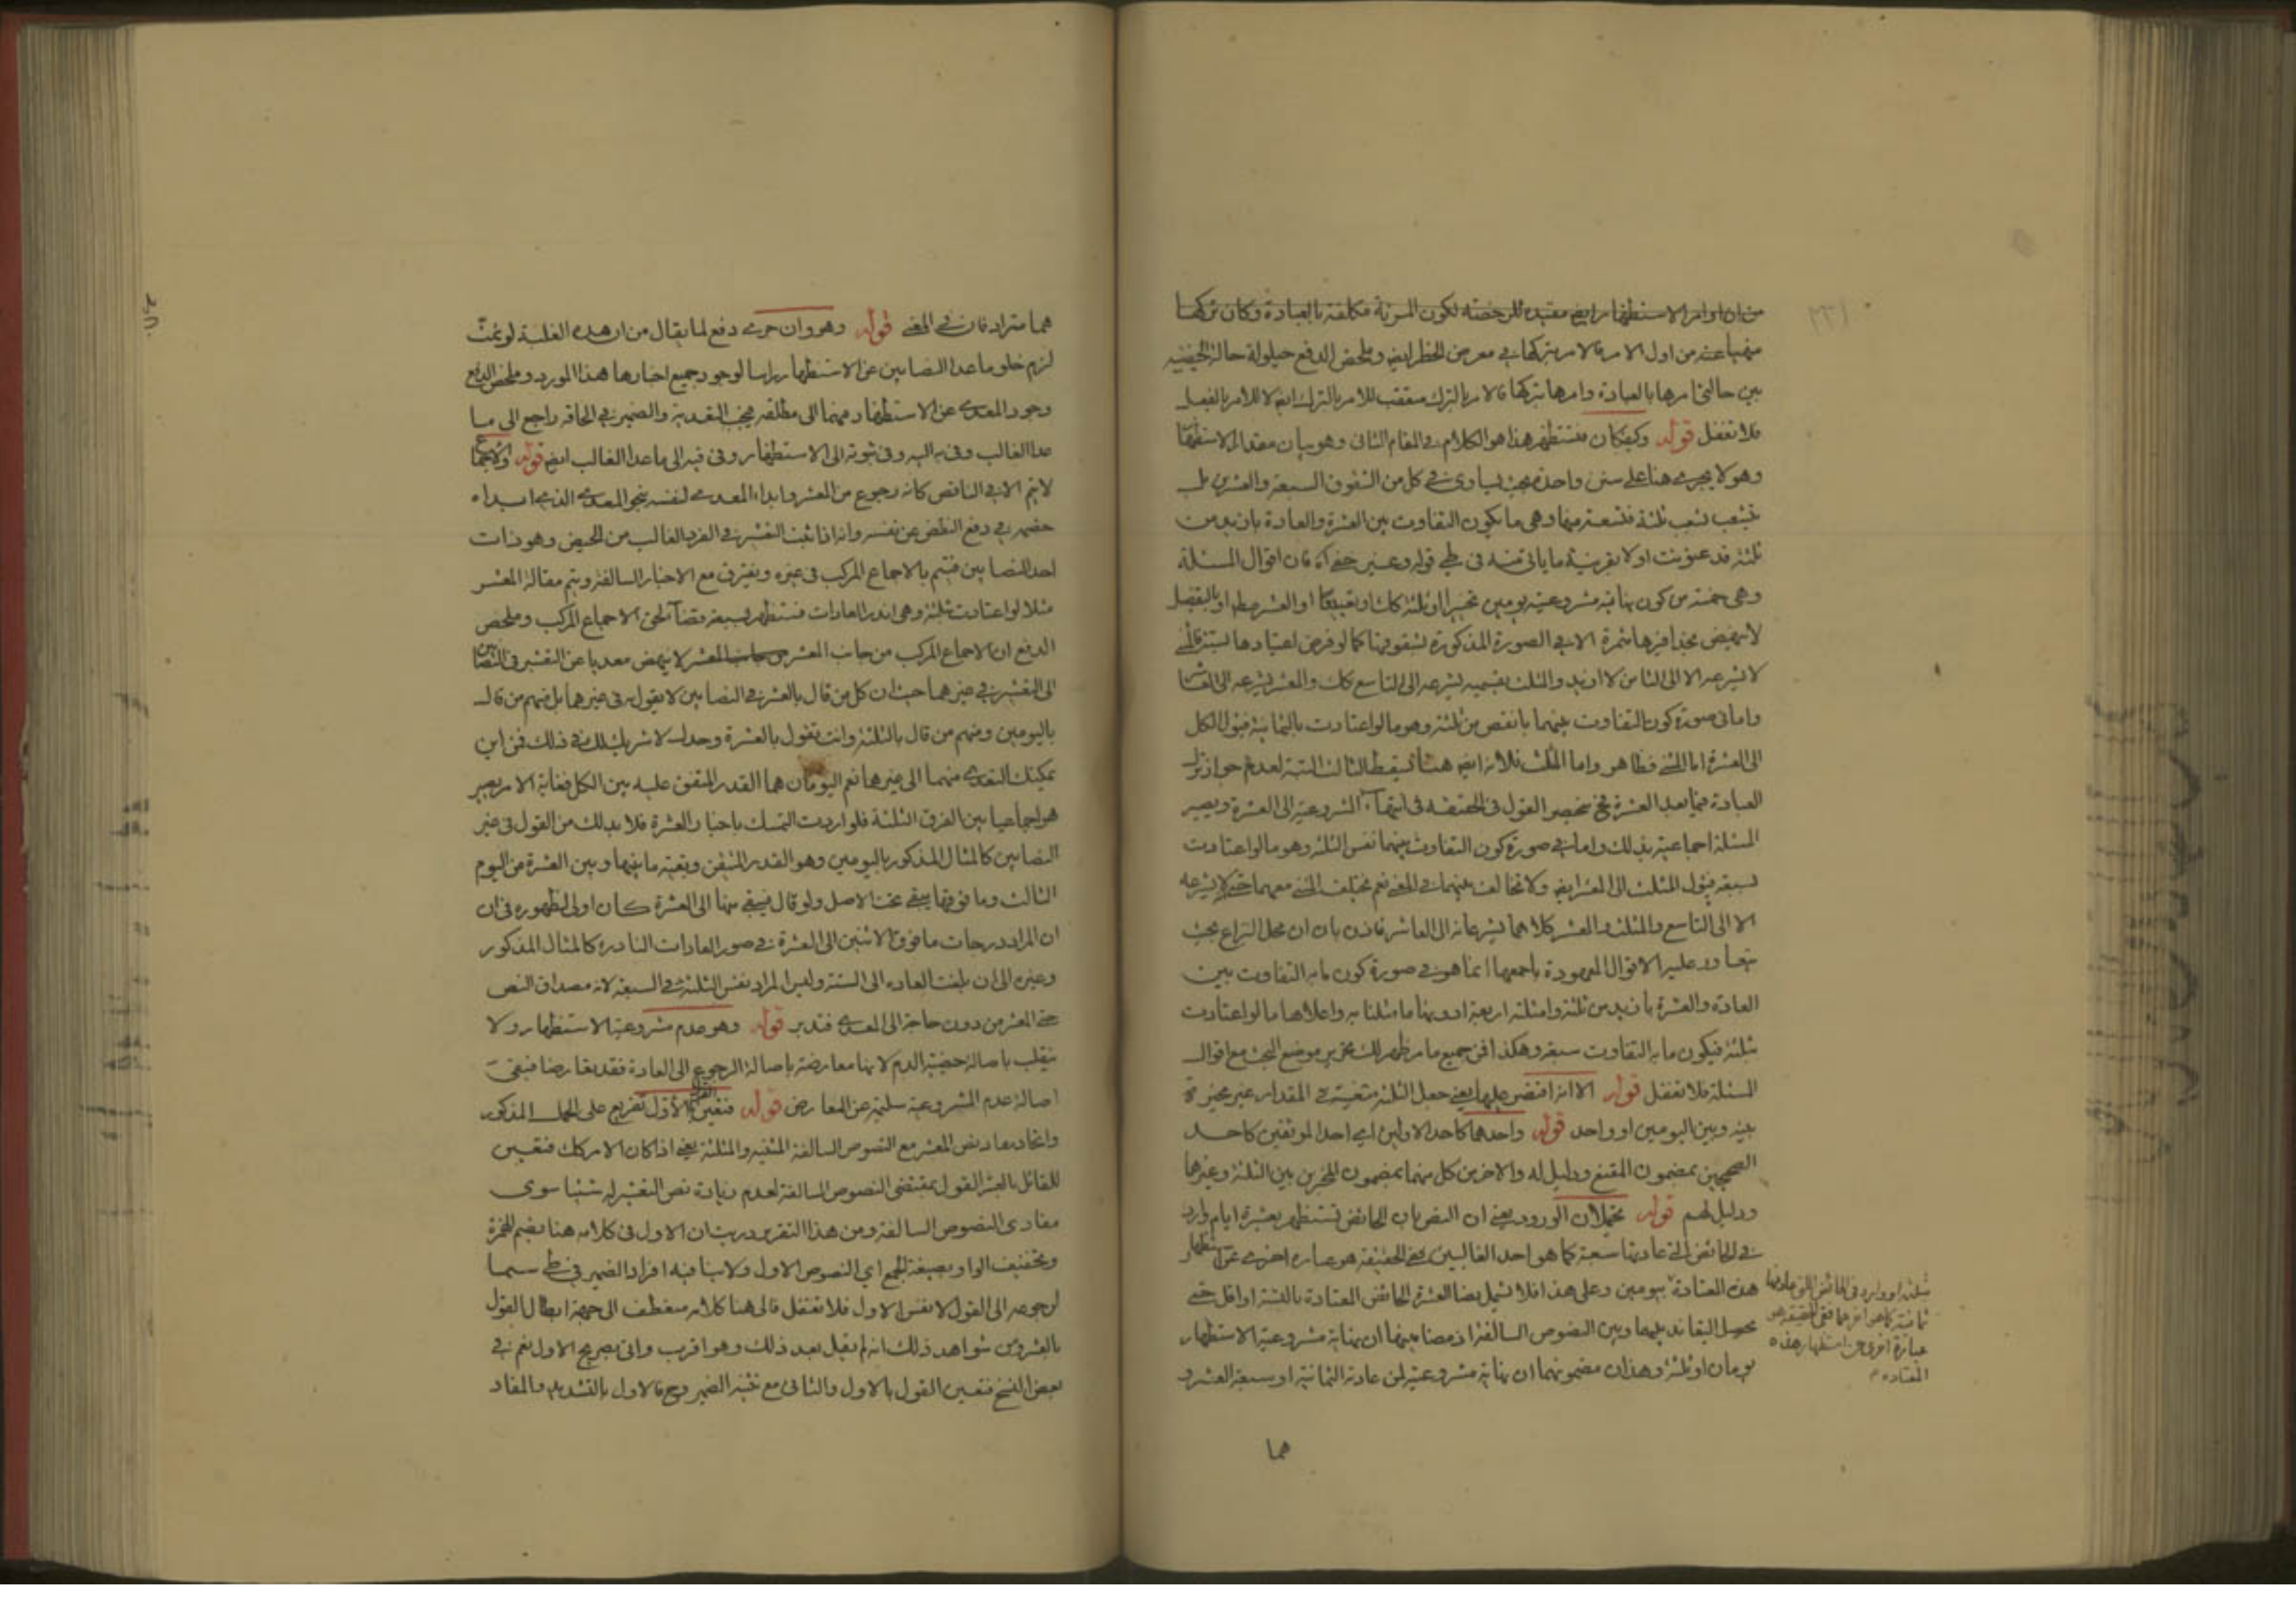 من ان اوامر الاستظهار ايض مفيدة للرخصة لكون المرئة مكلفة بالعبادة وكان تركها
منهيا عنه من اول الامر فالامر بتركها في معرض الحظر ايض وملخص الدفع حيلولة حالة الحيضية
بين حالتي امرها بالعبادة وامرها بتركها فالامر بالترك متعقب للامر بالترك ايض لا للامر بالفعل
فلا تغفل قوله وكيفكان فتستظهر هذا هو الكلام في المقام الثاني وهو بيان مقدار الاستظهار
وهو لا يجري هنا على سنن واحدة بحيث يساوى في كل من الشقوق السبعة والعشرين بل
يتشعب شعب ثلثة فتسعة منها وهي ما يكون التفاوت بين العشرة والعادة بازيد من
ثلثة قد عنونت اولا بقرينة ما ياتي منه في طي قوله وعن فان اقوال المسئلة
وهي خمسة من كون نهاية مشروعيته يومين تخييرا او ثلثة كك او تعيينا او العشر مط او بالتفصيل
لا ينهض بحذافيرها ثمرة الا في الصورة المذكورة لشقوقها كما لو فرض اعتيادها لستة فالمثنى
لا يشرعه الا الى الثامن لا ازيد والمثلث بقسميه يشرعه الى التاسع كك والمعشر يشرعه الى العاشر
واما في صورة كون التفاوت بينهما بانقص من ثلثة وهو ما لو اعتادت بالثمانية فيؤل الكل
الى العشرة اما المثنى فظاهر واما المثلث فلانه ايض هنا يسقط الثالث البتة لعدم جواز ترك
العبادة فيما بعد العشرة فح ينحصر القول في الحقيقة في انتهاء الشروعية الى العشرة ويصير
المسئلة اجماعية بذلك واما في صورة كون التفاوت بينهما نفس الثلثة وهو ما لو اعتادت
لسبعة فيؤل المثلث الى المعشر ايض ولا تخالف بينهما في المعنى نعم يختلف المثنى معهما لا يشرعه
الا الى التاسع والمثلث والمعشر كلاهما يشرعانه الى العاشر فاذن بان ان محل النزاع بحيث
يتعاور عليه الاقوال المعهودة باجمعها انما هو في صورة كون ما به التفاوت بين
العادة والعشرة بازيد من ثلثة وامثلته اربعة ادونها ما مثلنا به واعلاها ما لو اعتادت
ثلثة فيكون ما به التفاوت سبعة وهكذا في جميع ما مر ظهر لك تحرير موضع البحث مع اقوال
المسئلة فلا تغفل قوله الا انه اقتصر عليها يعني جعل الثلثة متعينة في المقدار غير مخيرة
بينه وبين اليومين او واحد قوله واحدهما كاحد الاولين اي احد الموثقين كاحد
الصحيحين بمضمون المقنع ودليل له والاخر من كل منهما بمضمون المخير بين الثلثة وغيرها
ودليل لهم قوله يحتملان الورود يعني ان النص بان الحائض تستظهر بعشرة ايام وارد
في الحائض التي عادتها سبعة كما هو احد الغالبين ففي الحقيقة هو عبارة اخرى عن استظهار
هذه المعتادة بيومين وعلى هذا فلا يشمل نصا العشرة الحائض المعتادة بالستة او اقل حتى
يحصل التعاند بينهما وبين النصوص السالفة اذ مضامينها ان نهاية مشروعية الاستظهار
يومان او ثلثة وهذان مضمونهما ان نهاية مشروعيته لمن عادته الثمانية او سبعة العشر و
ثلثة او وارد في الحائض التي عادتها
ثمانية كما هو اخرهما ففي الحقيقة هو
عبارة اخرى عن استظهار هذه
المعتادة
هما
هما مترادفان في المعنى قوله وهو وان جرى دفع لما يقال من ان هذه الغلبة لو تمت
لزم خلو ما عدا النصابين عن الاستظهار راسا لوجود جميع اخبارها هذا المورد وملخص الدفع
وجود المعدي عن الاستظهار منهما الى مطلقه فيجب التعدية والضمير في الحاقه راجع الى ما
عدا الغالب وفي به اليه وفي ثبوته الى الاستظهار وفي فيه الى ما عدا الغالب ايض قوله والاجماع
لا يتم الا في الناقص كانه رجوع من المعشر وابداء المعدي لنفسه بنحو المعدي الذي ابداه
خصمه في دفع النقض عن نفسه وانه اذا ثبت التعشير في الفرد الغالب من الحيض وهو ذات
احد النصابين فيتم بالاجماع المركب في غيره ويفترق مع الاخبار السالفة ويتم مقالة المعشر
مثلا لو اعتادت ثلثة وهي اندر العادات فتستظهر بسبعة قضاء لحق الاجماع المركب وملخص
الدفع ان الاجماع المركب من جانب المعشر لا ينهض معديا عن التعشير في النصابين
الى التعشير في غيرهما حيث ان كل من قال بالعشر في النصابين لا يقول به في غيرهما بل منهم من قال
باليومين ومنهم من قال بالثلثة وانت تقول بالعشرة وحدك لا شريك لك في ذلك فمن اين
يمكنك التعدي منهما الى غيرها نعم اليومان هما القدر المتفق عليه بين الكل فغاية الامر يصير
هو اجماعيا بين الفرق الثلثة فلو اردت التمسك باخبار العشرة فلا بد لك من القول في غير
النصابين كالمثال المذكور باليومين وهو القدر المتيقن وبقية ما بينها وبين العشرة من اليوم
الثالث وما فوقها يبقى تحت الاصل ولو قال فيبقى منها الى العشرة كان اولى لظهوره في ان
ان المراد درجات ما فوق الاثنين الى العشرة في صور العادات النادرة كالمثال المذكور
وغيره الى ان بلغت العادة الى الستة وليس المراد نفس الثلثة في السبعة لانه مصداق النص
حتى المعشر من دون حاجة الى المعدي فتدبر قوله وهو عدم مشروعية الاستظهار ولا
ينقلب باصالة حيضية الدم لانها معارضة باصالة الرجوع الى العادة فقد تعارضا فبقى
اصالة عدم المشروعية سليمة عن المعارض قوله فتعين القول بالاول تفريع على الحمل المذكور
واتحاد مفاد نص المعشر مع النصوص السالفة المثنية والمثلثة يعني اذا كان الامر كك فتعين
للقائل بالعشر القول بمقتضى النصوص السالفة لعدم زيادة نص التعشير له شيئا سوى
مفادى النصوص السالفة ومن هذا التقرير دريت ان الاول في كلامه هنا بضم الهمزة
وتخفيف الواو بصيغة الجمع اي النصوص الاول ولا ينافيه افراد الضمير في طي سيما
لرجوعه الى القول لا نفس الاول فلا تغفل فالى هنا كلامه منعطف الى جهة ابطال القول
بالعشر ومن شواهد ذلك انه لم يقل بعد ذلك وهو اقرب واتى بصريح الاول نعم في
بعض النسخ فتعين القول بالاول والثاني مع تثنية الضمير وح فالاول بالتشديد والمفاد